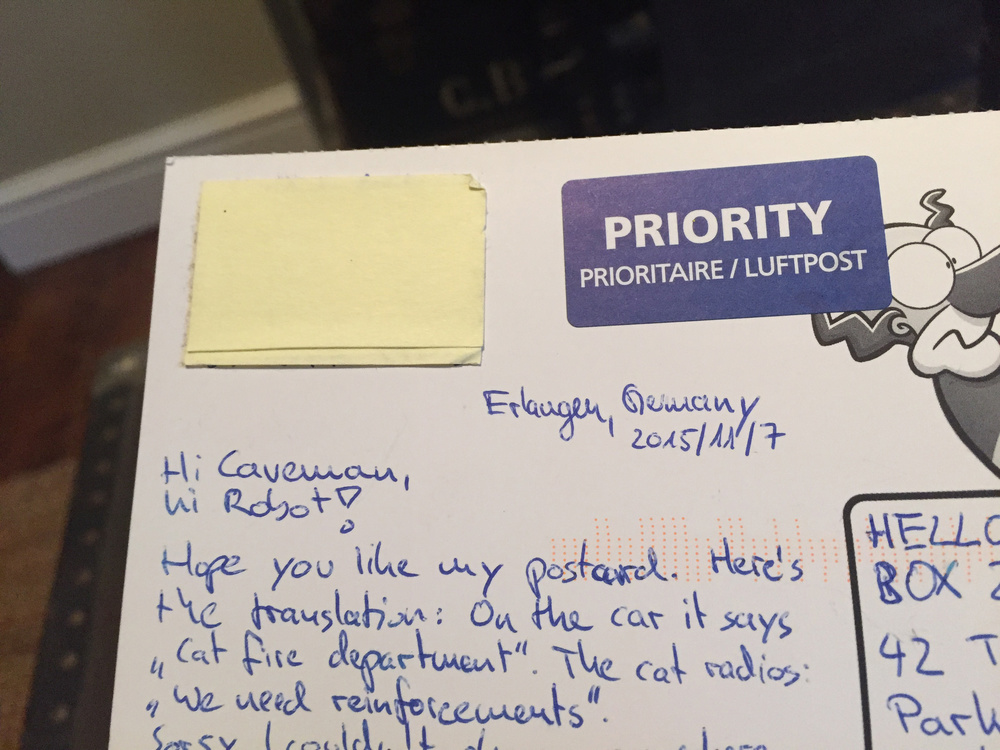 G.B
PRIORITY
PRIORITAIRE / LUFTPOST
Erlangen, Germany
2015/11/7
Hi Caveman,
hi Robot!
Hope you like my postcard. Here's
the translation: On the car it says
„Cat fire department“. The cat radios:
„We need reinforcements“.
Sorry I couldn't
HELLO
BOX
42 T
Park